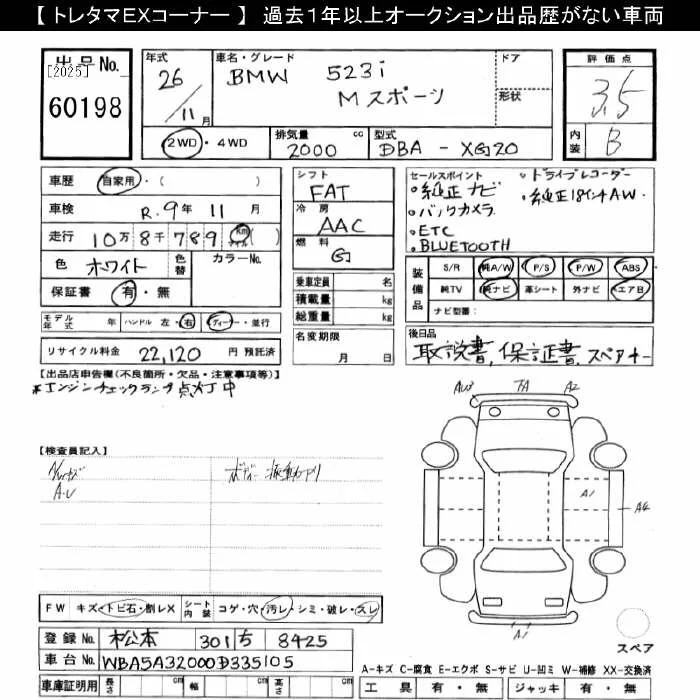 【 トレタマEXコーナー 】 過去1年以上オークション出品歴がない車両
出品No.
[2025]
60198
年式
26/11月
車名・グレード
BMW 523i
Mスポーツ
ドア
形状
評価点
3.5
内装
B
2WD・4WD
排気量 cc
2000
型式
DBA - XG20
車歴 自家用・( )
車検 R.9年 11月
走行 10万8千789 km( )
色 ホワイト 色替 カラーNo.
保証書 有・無
モデル年式 年 ハンドル 左・右 ディーラー・並行
リサイクル料金 22,120 円 預託済
シフト
FAT
冷房
AAC
燃料
G
乗車定員 名
積載量 kg
総重量 kg
名変期限
月 日
セールスポイント
・純正ナビ ・ドライブレコーダー
・バックカメラ ・純正18インチAW.
・ETC
・BLUETOOTH
装備品
S/R 純A/W P/S P/W ABS
純TV 純ナビ 革シート 外ナビ エアB
ナビ型番:
後日品
取説書, 保証書, スペアキー
【出品店申告欄(不良箇所・欠品・注意事項等)】
※エンジンチェックランプ点灯中
【検査員記入】
A.U
ボディー 振動アリ
AU3 TA A2
A1 A4
A1
スペア
FW キズ・トビ石・割レX シート内装 コゲ・穴・汚レ・シミ・破レ・スレ
登録No. 松本 301 ち 8425
車台No. WBA5A32000D335105
車庫証明用 長さ cm 幅 cm 高さ cm
A-キズ C-腐食 E-エクボ S-サビ U-凹ミ W-補修 XX-交換済
工具 有・無 ジャッキ 有・無